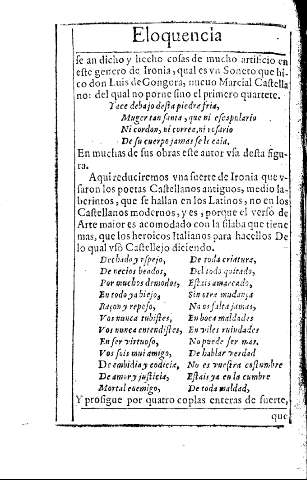 Eloquencia
se an dicho y hecho cosas de mucho artificio en
este genero de Ironia, qual es vn Soneto que hi-
co don Luis de Gongora, nueuo Marcial Castella
no: del qual no porne sino el primero quartete.
Yace debajo desta piedra fria,
Muger tan santa, que ni escapulario
Ni cordon, ni correa, ni rosario
De su cuerpo jamas se le caia.
En muchas de sus obras este autor vsa desta figu-
ra.
Aqui reduciremos vna suerte de Ironia que v-
saron los poetas Castellanos antiguos, medio la-
berintos, que se hallan en los Latinos, no en los
Castellanos modernos, y es, porque el verso de
Arte maior es acomodado con la silaba que tiene
mas, que los heroicos Italianos para hacellos De
lo qual vsò Castillejo diciendo.
Dechado y espejo, De toda criatura,
De necios beodos, Del todo quitado,
Por muchos de modos, Estais amareado,
En todo ya biejo, Sin otra mudança
Raçon y repejo, No os falta jamas,
Vos nunca tubistes, En boca maldades
Vos nunca entendistes, En viles ruindades
En ser virtuoso, No puede ser mas.
Vos sois mui amigo, De hablar verdad
De embidia y codicia, No es vuestra costumbre
De amor y justicia, Estais ya en la cumbre
Mortal enemigo, De toda maldad,
Y prosigue por quatro coplas enteras de suerte,
que